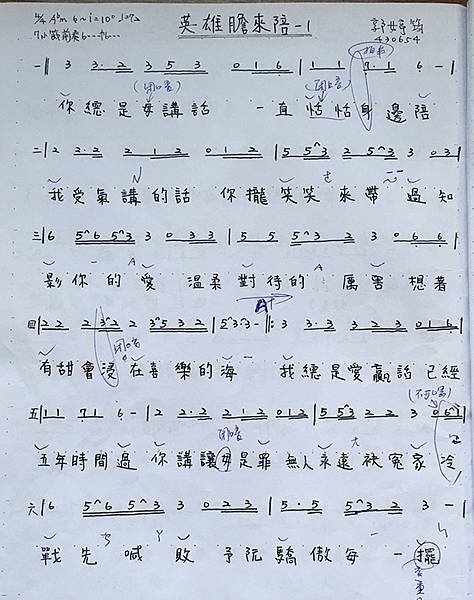 英雄膽來陪-1
郭婷筠
430654
一‖ 3 3·2 3 5 3 0 1 6 | 1 1 7 1 6 - |
(閉口音) (閉口音)
你總是毋講話 一直恬恬身邊陪
二| 2 2·2 2 1 2 0 1 2 | 5 5^3 2 5^3 3 0 3 |
我受氣講的話 你攏笑笑來帶過知
三| 6 5^6 5^3 3 0 3 3 | 5 5 5^3 2 3 0 6 6 |
影你的愛 溫柔對待的厲害 想著
四| 2 2 2 3^2 2 3^5 3 2 | 5^3·3 - ‖: 3 3·3 3 2 3 0 1 6 |
閉口音
有甜會燙在喜樂的海 我總是愛贏話 已經
五| 1 1 7 1 6 - | 2 2·2 2 1 2 0 1 2 | 5 5^3 2 2 3 0 6 |
閉口音
五年時間過 你講讓毋是罪 無人永遠袂冤家 冷
六| 6 5^6 5^3 3 0 2 3 | 5·5 5^3·2 3 - |
戰先喊敗 予阮驕傲每一擺